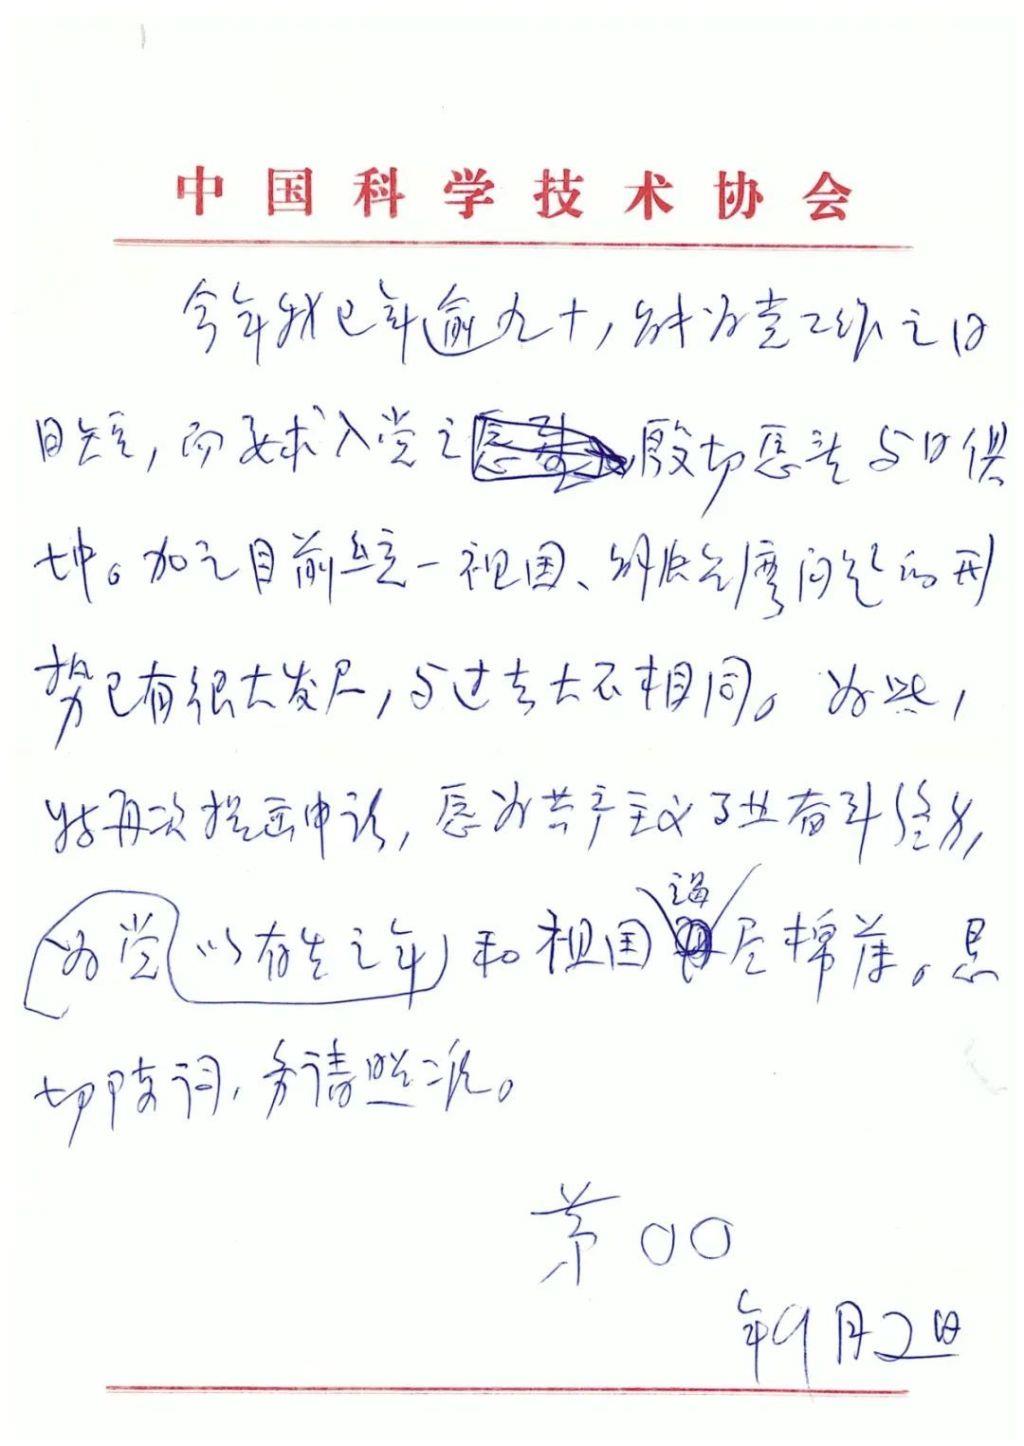 中国科学技术协会
今年我已年逾九十，能为党工作之日
日短，而要求入党之殷切愿望与日俱
增。加之目前统一祖国、解决台湾问题的形
势已有很大发展，与过去大不相同。为此，
特再次提出申请，愿为共产主义事业奋斗终身，
为党（以有生之年）和祖国统一尽棉薄。恳
切陈词，务请照准。
茅〇〇
年9月2日